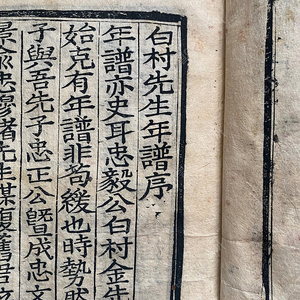 白村先生年譜序
年譜亦史耳忠毅公白村金先
始克有年譜非苟緩也時勢然
子與吾先子忠正公曁成忠文
景
忠
諸先生謀復舊君